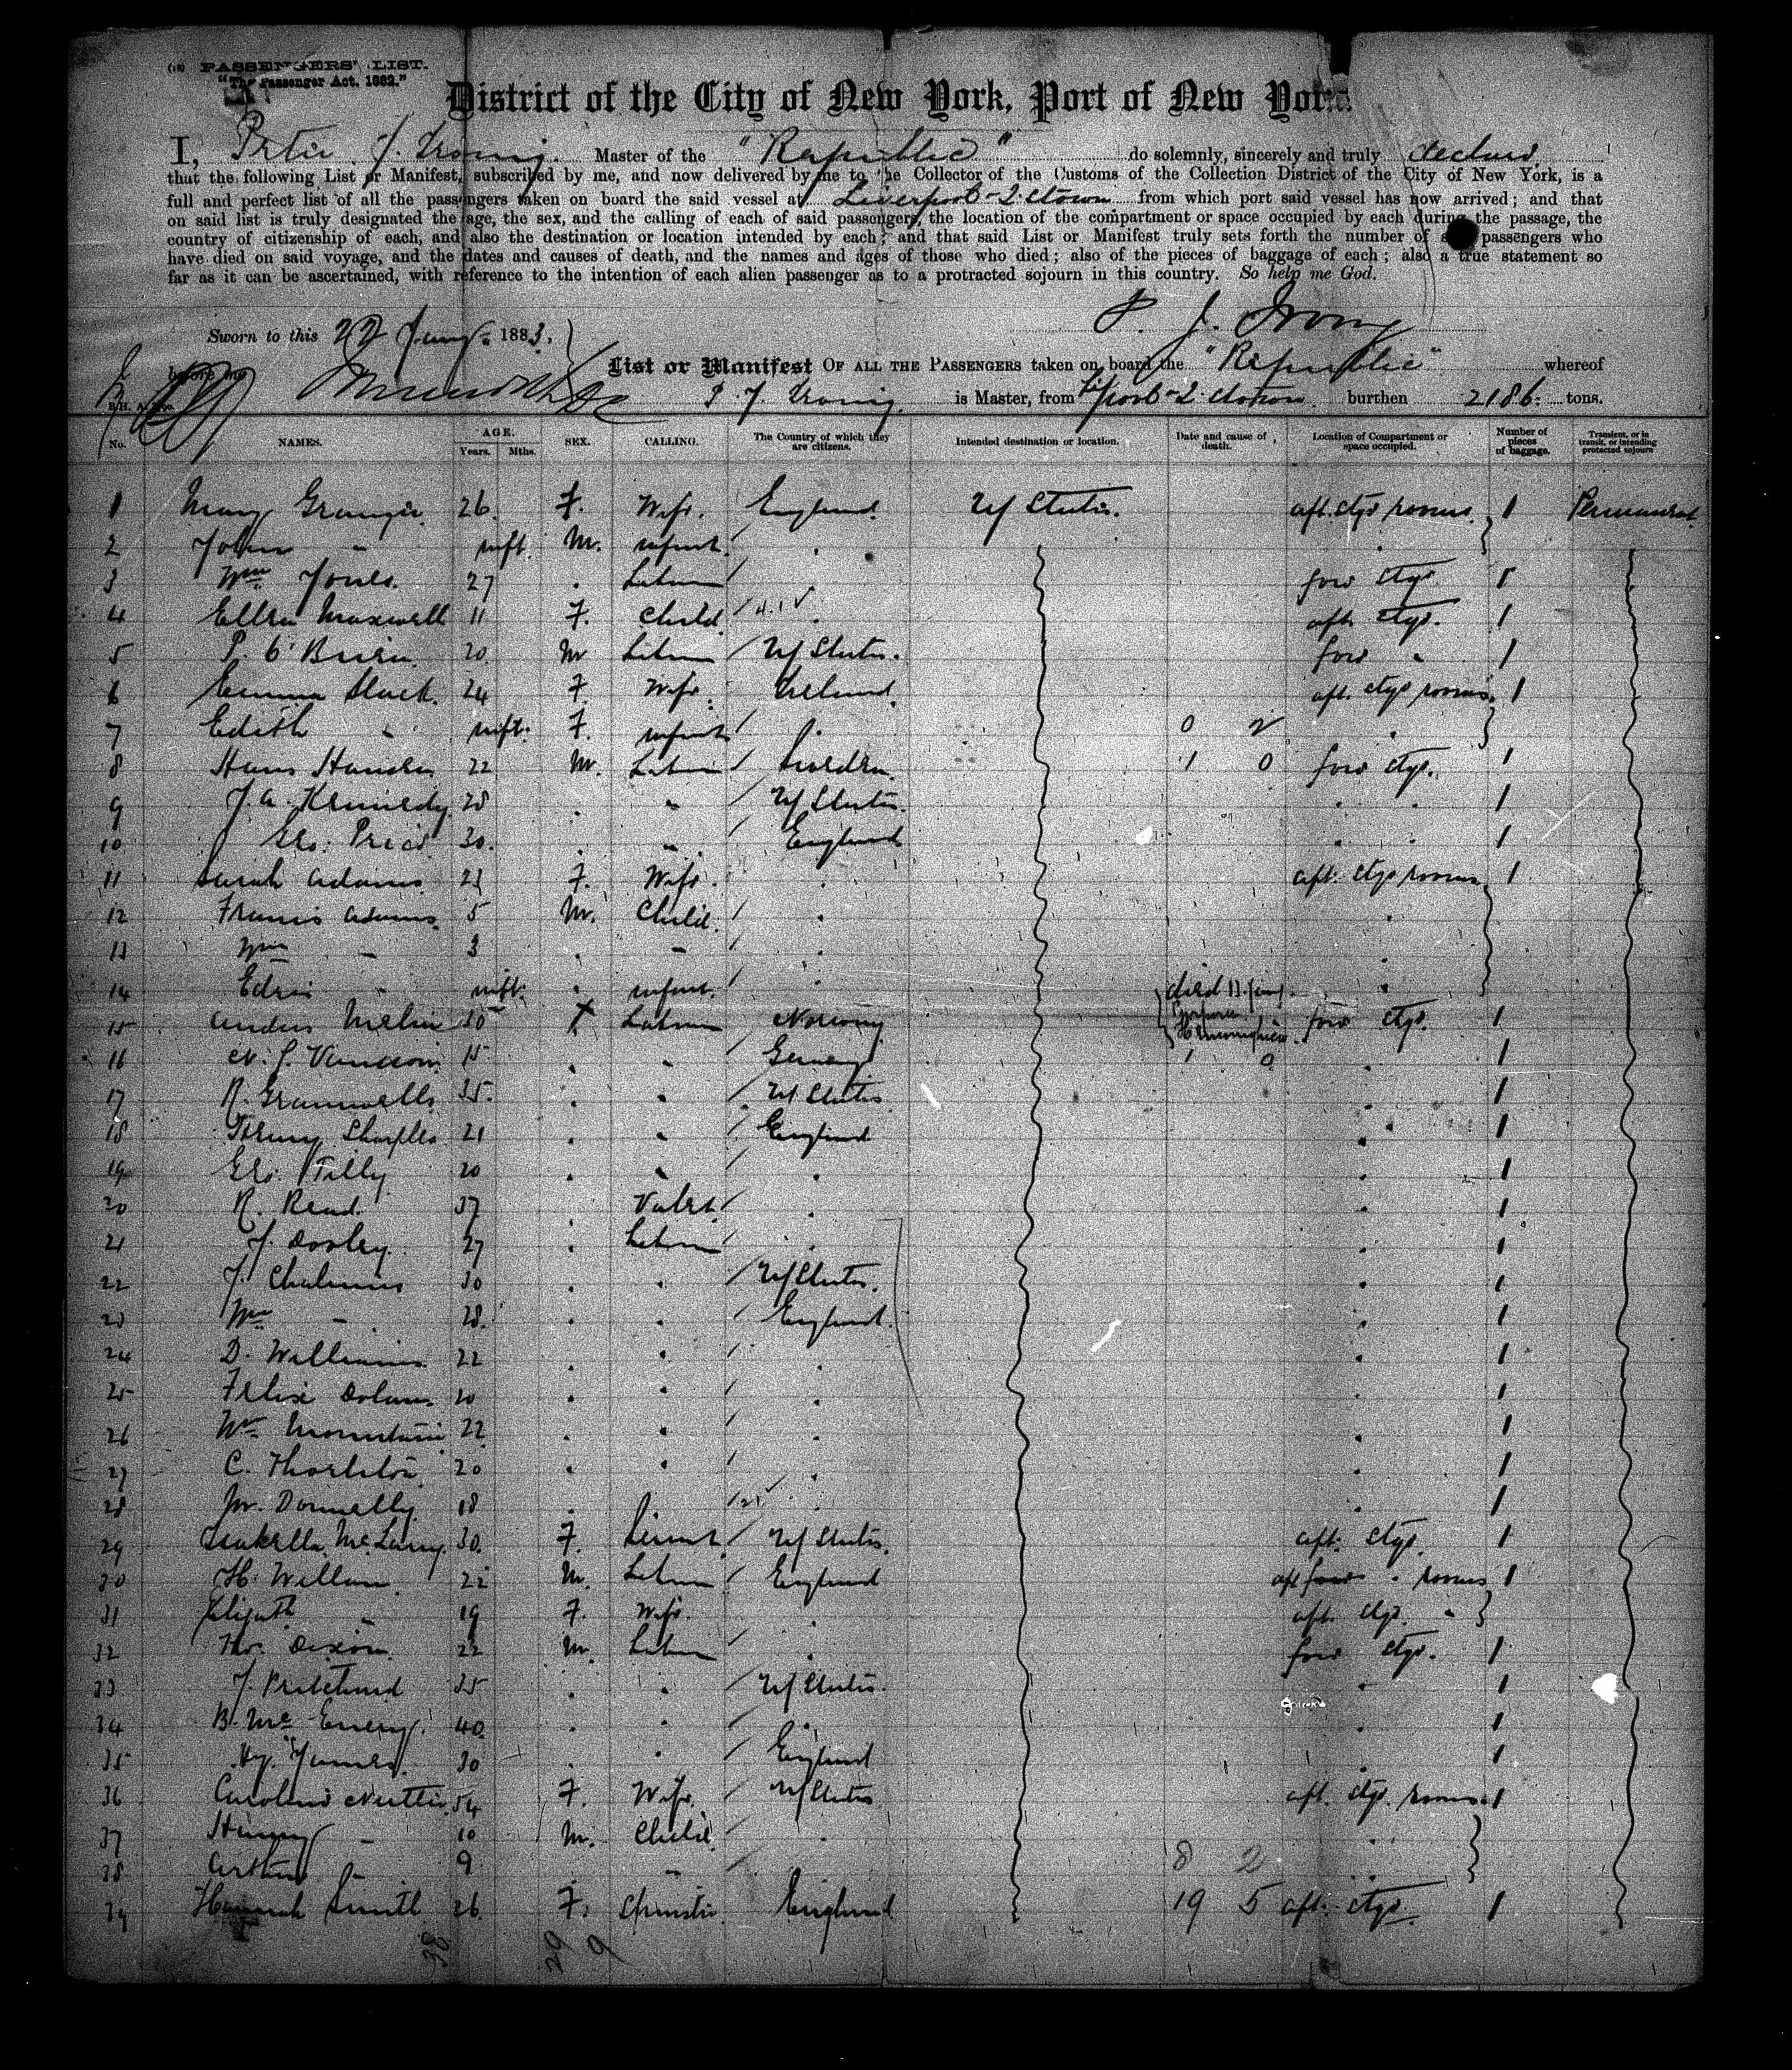 PASSENGERS' LIST.
"The Passenger Act. 1882."
District of the City of New York, Port of New York.
I, Peter J. Irving. Master of the "Republic" do solemnly, sincerely and truly declare
that the following List or Manifest, subscribed by me, and now delivered by me to the Collector of the Customs of the Collection District of the City of New York, is a
full and perfect list of all the passengers taken on board the said vessel at Liverpool - Q.town from which port said vessel has now arrived; and that
on said list is truly designated the age, the sex, and the calling of each of said passengers, the location of the compartment or space occupied by each during the passage, the
country of citizenship of each, and also the destination or location intended by each; and that said List or Manifest truly sets forth the number of passengers who
have died on said voyage, and the dates and causes of death, and the names and ages of those who died; also of the pieces of baggage of each; also a true statement so
far as it can be ascertained, with reference to the intention of each alien passenger as to a protracted sojourn in this country. So help me God.
P. J. Irving
Sworn to this 22 Jany. 1883.
before me
List or Manifest OF ALL THE PASSENGERS taken on board the "Republic" whereof
P. J. Irving is Master, from L'pool - Q.town burthen 2186. tons.
No. NAMES. AGE. Years. Mths. SEX. CALLING. The Country of which they are citizens. Intended destination or location. Date and cause of death. Location of Compartment or space occupied. Number of pieces of baggage. Transient, or in transit, or intending protracted sojourn
1 Mary Granger. 26. F. Wife. England. U/States. aft. stge rooms. 1 Permanent
2 John " inft. M. infant.
3 Wm Jones. 27 . Labour fow stge 1
4 Ellen Maxwell 11 F. Child. aft. stge. 1
5 P. O'Brien. 20. M Labour U/States. fow " 1
6 Emma Slack. 24 F. Wife. Ireland. aft. stge rooms. 1
7 Edith " inft. F. infant 0 2
8 Hans Hansen 22 M. Labour Sweden. 1 0 fow stge. 1
9 J. A. Kennedy 28 . " U/States. 1
10 Geo: Price 30. . " England 1
11 Sarah Adams. F. Wife. . aft. stge rooms 1
12 Francis Adams. 5 M. Child. .
13 Wm - 3 . - .
14 inft. . infant. . died 11. Jany.
15 30 Labour Norway fow stge. 1
16 15 . . Germany 1 0 1
17 R. Gramwells 35. . . U/States 1
18 Henry Sharples 21 . . England 1
19 Geo. Tilly 20 . . . 1
20 R. Read. 37 . Valet . 1
21 J. Dooley. 27 . Labour . 1
22 J. Chalmers 30 . . U/States. 1
23 Wm - 28. . . England. 1
24 D. Williams 22 . . . 1
25 Felix Dolan. 20 . . . 1
26 Wm Mountain 22 . . . 1
27 C. 20 . . . 1
28 M. Donnelly 18 . . 1
29 Isabella 30. F. Servt. U/States. aft. stge. 1
30 H. Willan. 22 M. Labour England aft fow " rooms 1
31 Elizath " 19 F. Wife. . aft. stge. "
32 Thos. Dixon. 22 M. Labour . fow stge. 1
33 J. Pritchard 35 . . U/States. 1
34 B. 40. . . . 1
35 Hy. James. 30 . . England 1
36 Caroline 54 F. Wife. U/States aft. stge. rooms. 1
37 Henry - 10 M. Child. .
38 Arthur - 9 - 8 2
39 Hannah Smith 26. F. England 19 5 aft. stge. 1
38 29 9